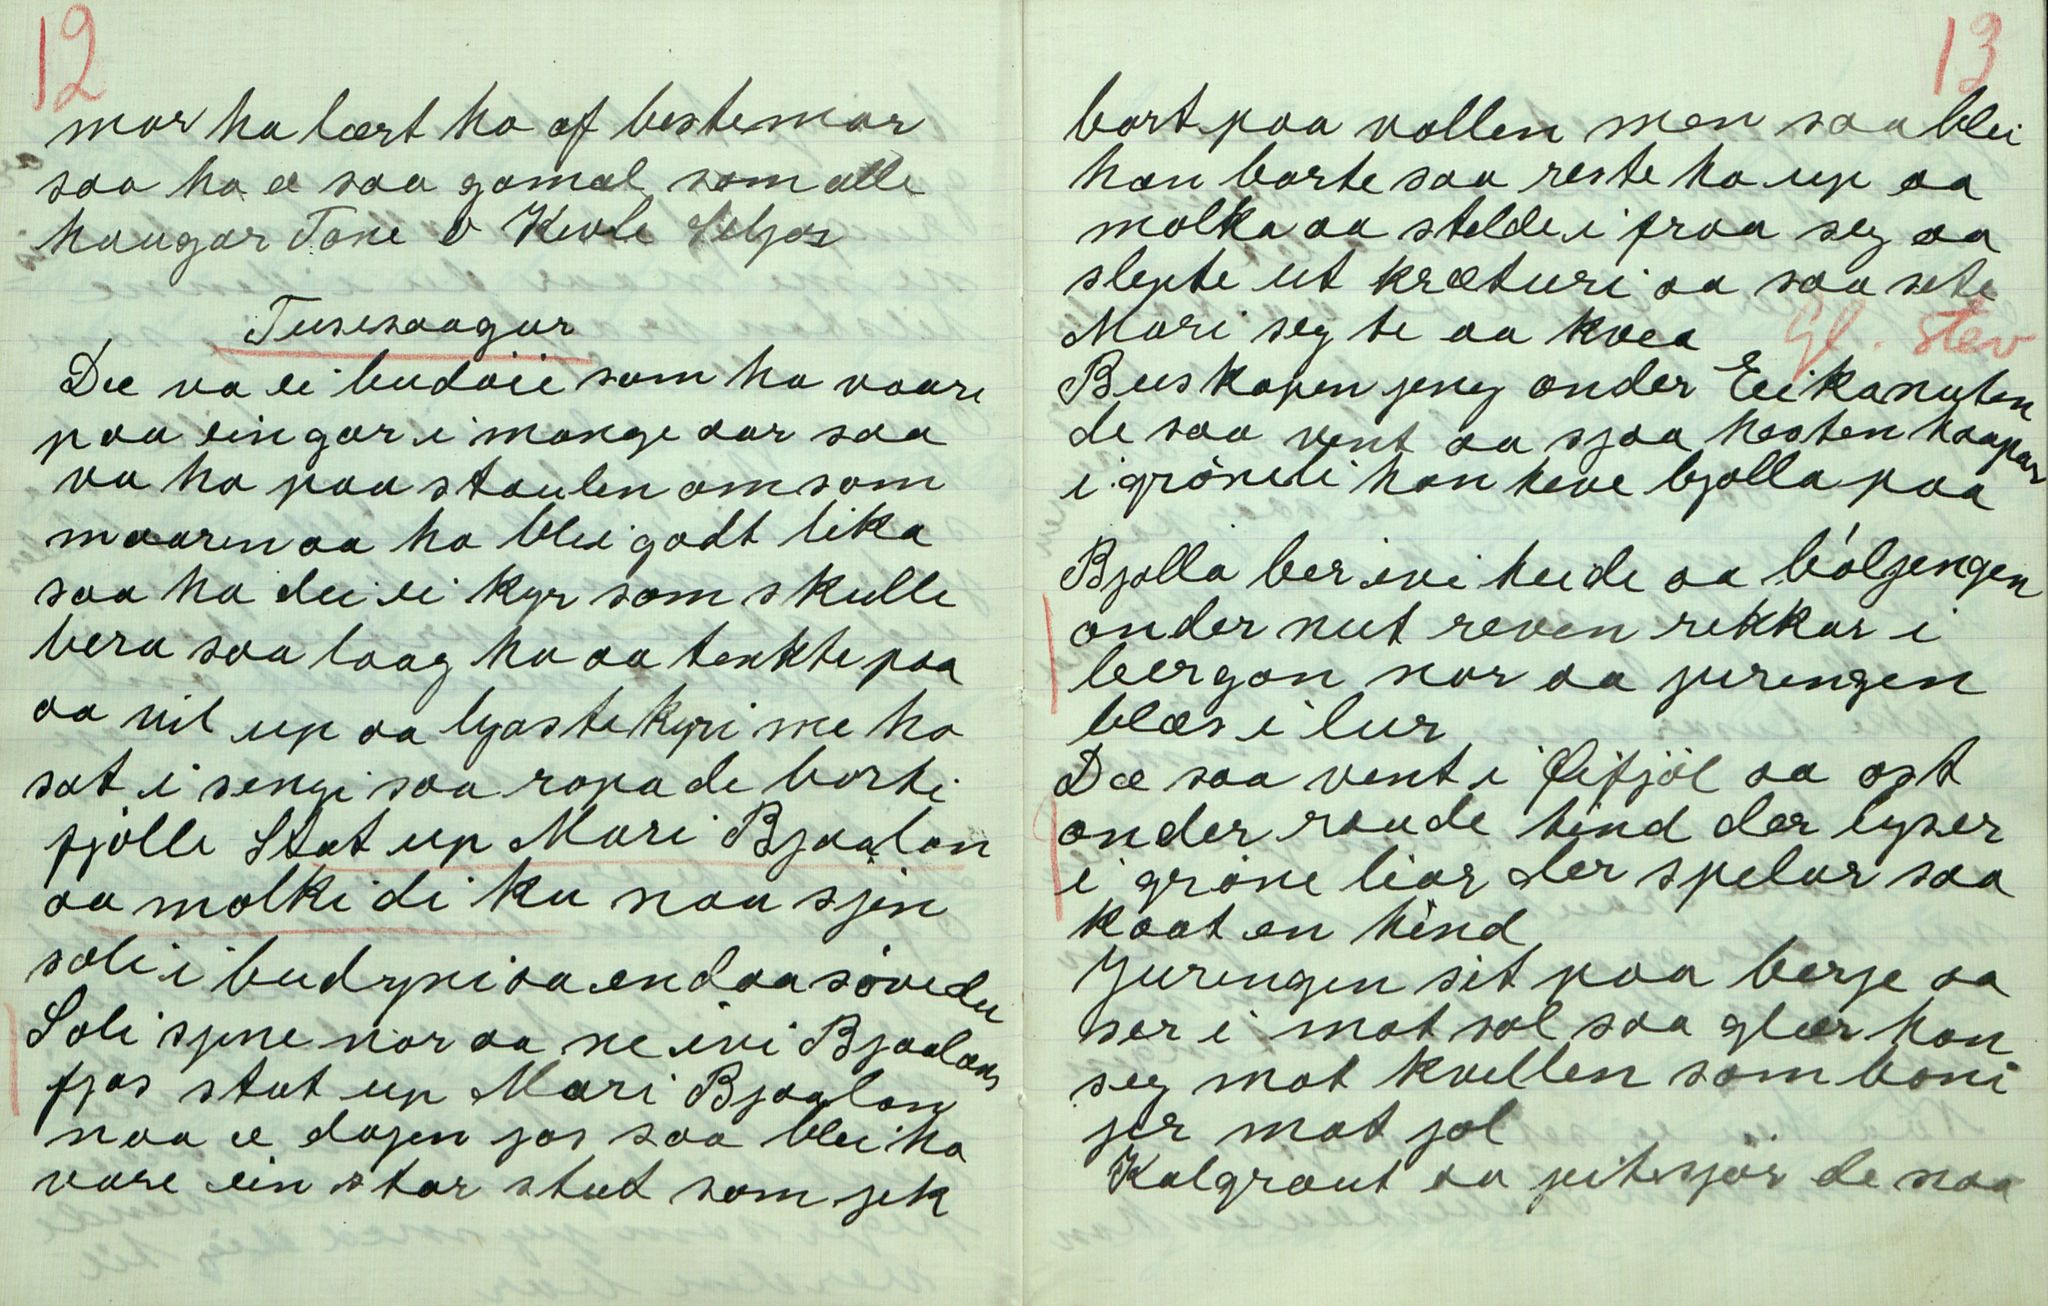 12
mor ha lært ho af bestemor
saa ho æ saa gamal som alle
haugar Tone O Kvole Seljor
Tusesaagur
Dæ va ei budeie som ha vaare
paa ein gar i mange aar saa
va ho paa staulen om som
maaren aa ho blei godt lika
saa ha dei ei kyr som skulle
bera saa laag ho aa tenkte paa
aa vil up aa lyaste kyri me ho
sat i sengi saa ropa de borti
fjölle Stat up Mari Bjaalon
aa molki di ku naa sjin
soli i budyni aa endaa söve du
Soli sjine nor aa ne ivi Bjaalons
fjos stat up Mari Bjaalon
naa æ dagen jos saa blei ho
vare ein stor stud som jek
13
bort paa vollen men saa blei
han borte saa reste ho up aa
molka aa stelde i fraa seg aa
slepte ut kræturi aa saa sete
Mari seg te aa kvea
Gl. stev
Buskapen jeng onder Eikanuten
de saa vent aa sjaa hesten haapar
i gröneli han heve bjolla paa
Bjolla ber ivi heide aa bóljengen
onder nut reven rekkar i
bergon nor aa jurengen
blæs i lur
Dæ saa vent i Lifjöl aa ost
onder raude tind der lyser
i gröne liar der spelar saa
kaat en hind
Jurengen sit paa berje aa
ser i mot sol saa glær han
seg mot kvellen som boni
jer mot jol
Kolgraut aa jeitesjör de naa